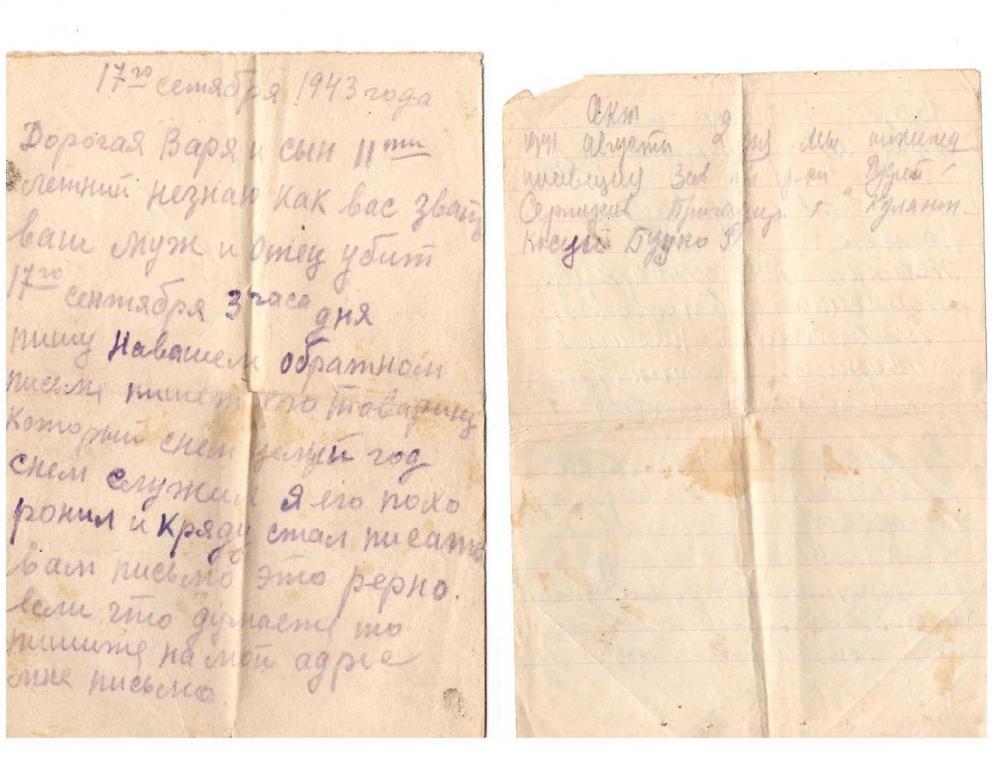 17го сетября 1943 года
Дорогая Варя и сын 11ти
летний незнаю как вас звать
ваш муж и отец убит
17го сентября 3 часа дня
пишу Навашем обратном
письме пишет его товарищ
Который снем целый год
снем служил я его похо
ронил и Кряду стал писать
вам письмо это рерно.
если что думаете то
пишите на мой адрес
мне письмо
Акт
августа 2 дня Мы
Зав
Бригадир